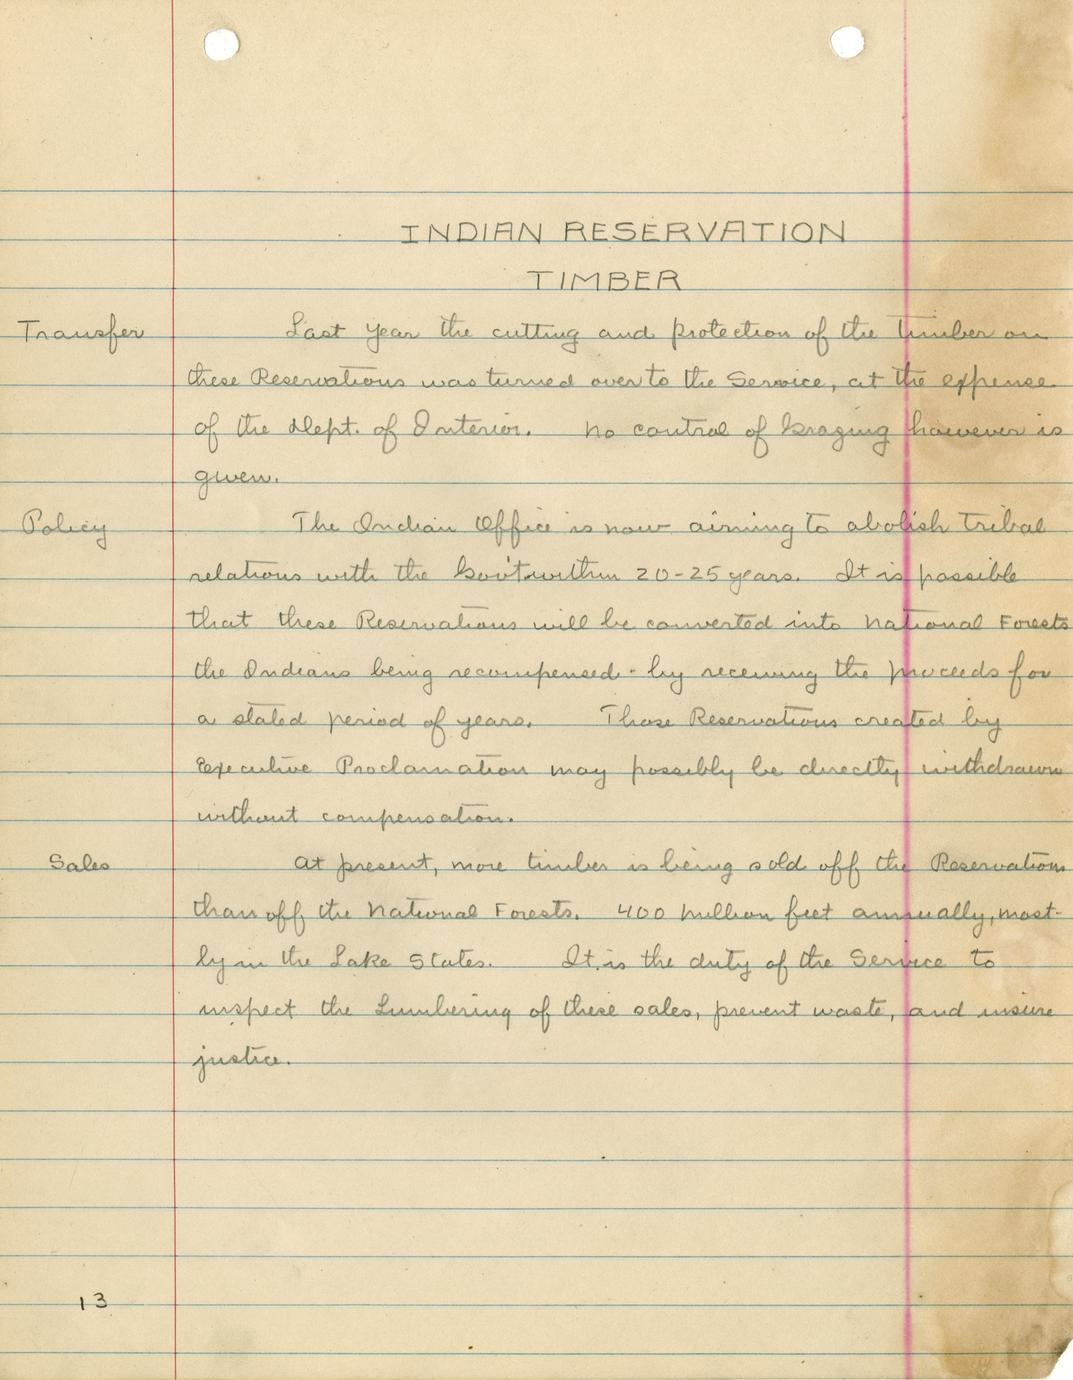 INDIAN RESERVATION
TIMBER
Transfer Last year the cutting and protection of the timber on
these Reservations was turned over to the Service, at the expense
of the Dept. of Interior. No control of Grazing however is
given.
Policy The Indian Office is now aiming to abolish tribal
relations with the Gov't within 20-25 years. It is possible
that these Reservations will be converted into National Forests
the Indians being recompensed - by receiving the proceeds for
a stated period of years. Those Reservations created by
Executive Proclamation may possibly be directly withdrawn
without compensation.
Sales At present, more timber is being sold off the Reservations
than off the National Forests. 400 million feet annually, most-
ly in the Lake States. It is the duty of the Service to
inspect the Lumbering of these sales, prevent waste, and insure
justice.
13